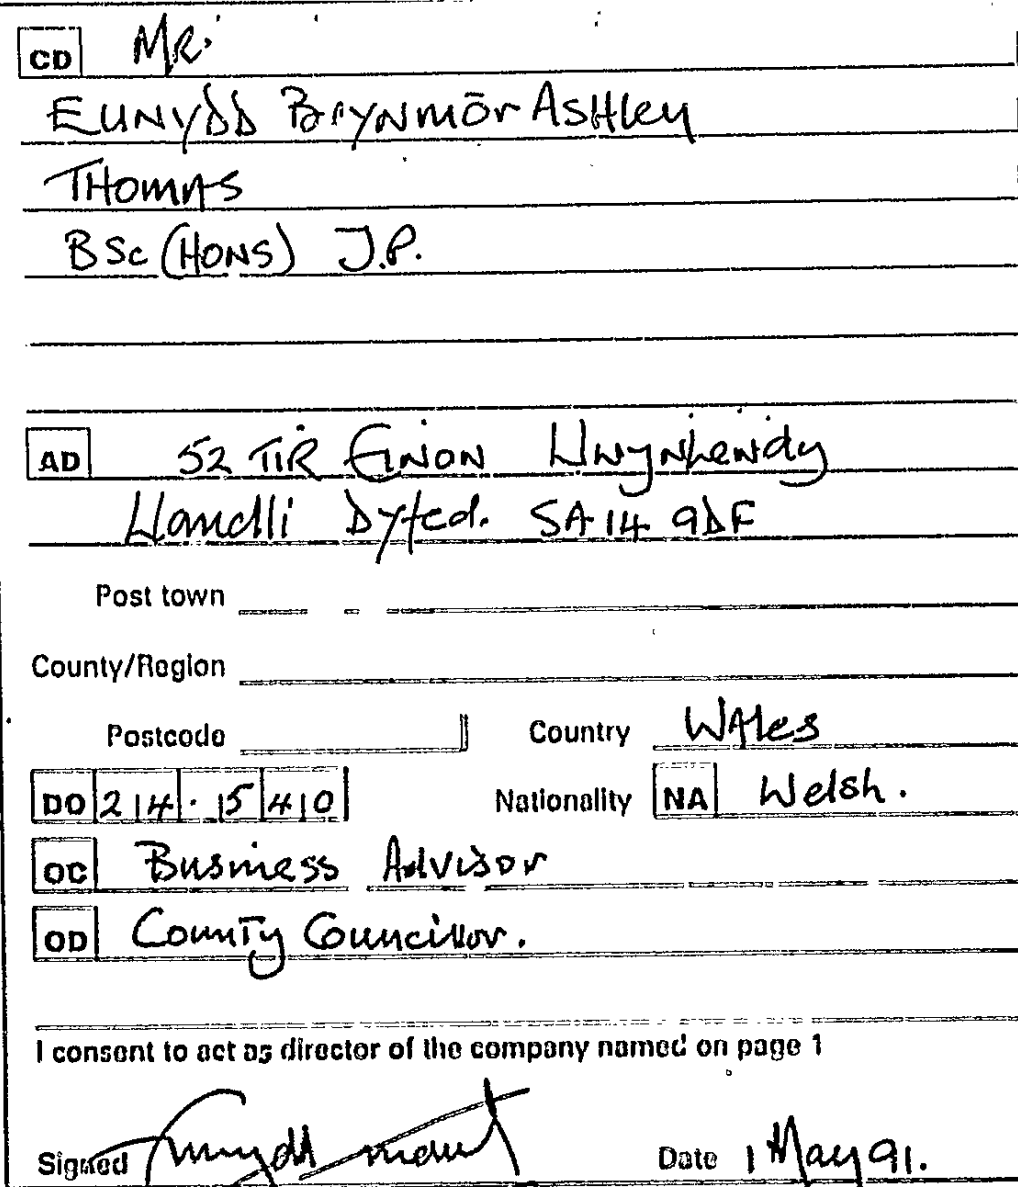 CD Mr.
EUNYDD BRYNMÔR ASHLEY
THOMAS
BSc (HONS) J.P.
AD 52 TIR EINON Llwynhendy
Llanelli Dyfed. SA14 9DF
Post town
County/Region
Postcode Country WAles
DO 24 · 5 40 Nationality NA Welsh.
OC Business Advisor
OD County Councillor.
I consent to act as director of the company named on page 1
Signed Date 1 May 91.